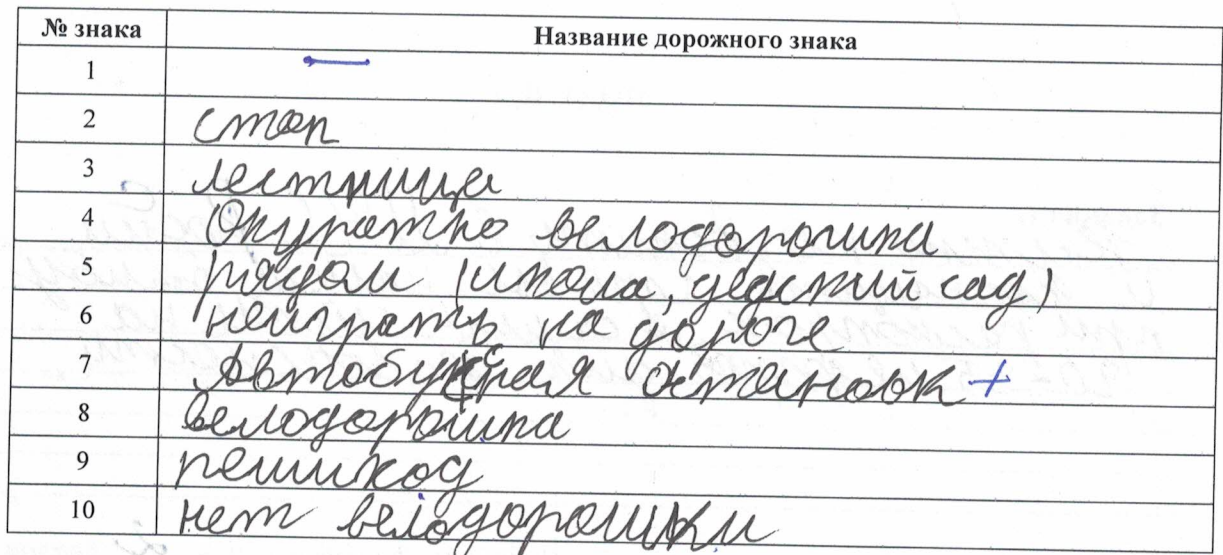 № знака Название дорожного знака
1 —
2 стоп
3 лестница
4 Окуратно велодорошка
5 рядом (школа, дедский сад)
6 неиграть на дороге
7 Автобусная остановк +
8 велодорошка
9 пешиход
10 нет велодорошки